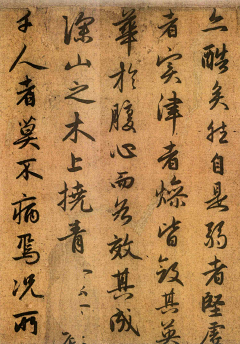 亦酷矣然自是弱者堅虛
者實津者燥皆斂其英
華於腹心而各效其成
深山之木上撓青
千人者莫不病焉况所